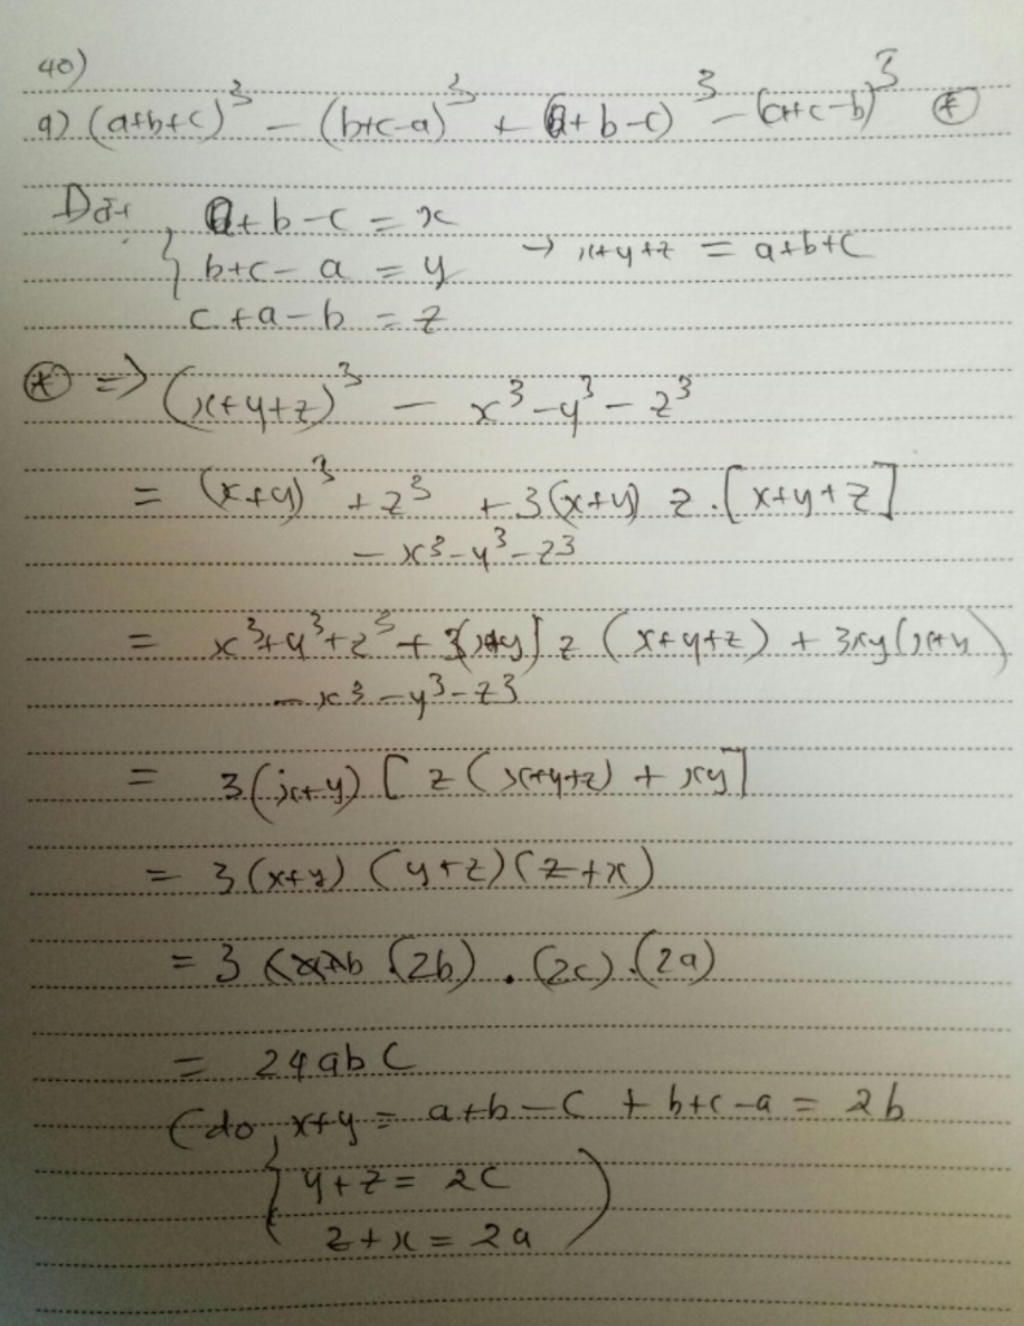 40)
a) (a+b+c)³ - (b+c-a)³ + (a+b-c)³ - (a+c-b)³ (*)
Đặt { a+b-c = x
b+c-a = y → x+y+z = a+b+c
c+a-b = z
(*) => (x+y+z)³ - x³-y³-z³
= (x+y)³ + z³ + 3(x+y) z.[x+y+z]
- x³-y³-z³
= x³+y³+z³ + 3(x+y] z (x+y+z) + 3xy(x+y)
- x³ - y³ - z³
= 3(x+y) [ z (x+y+z) + xy]
= 3 (x+y) (y+z) (z+x)
= 3 (2b) . (2c).(2a)
= 24abc
(do { x+y = a+b-c + b+c-a = 2b
y+z = 2c
z+x = 2a )